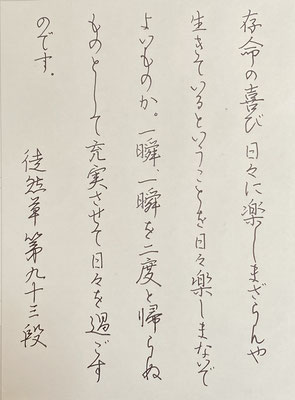 存命の喜び日々に楽しまざらんや
生きているということを日々楽しまないで
よいものか。一瞬、一瞬を二度と帰らぬ
ものとして充実させて日々を過ごす
のです。
徒然草第九十三段